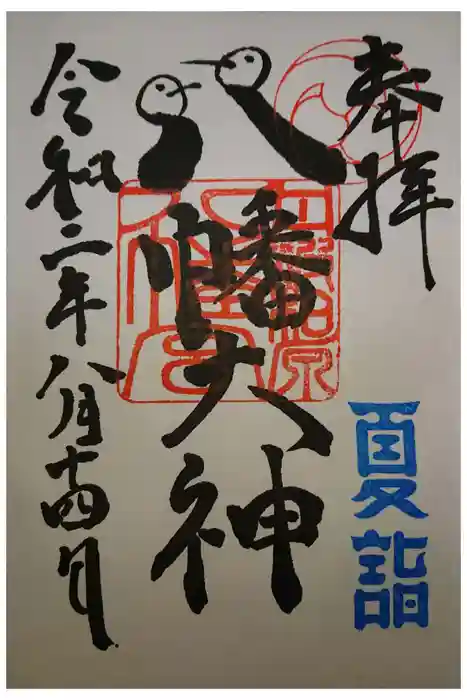 奉拝
夏詣
八幡大神
令和二年八月十四日